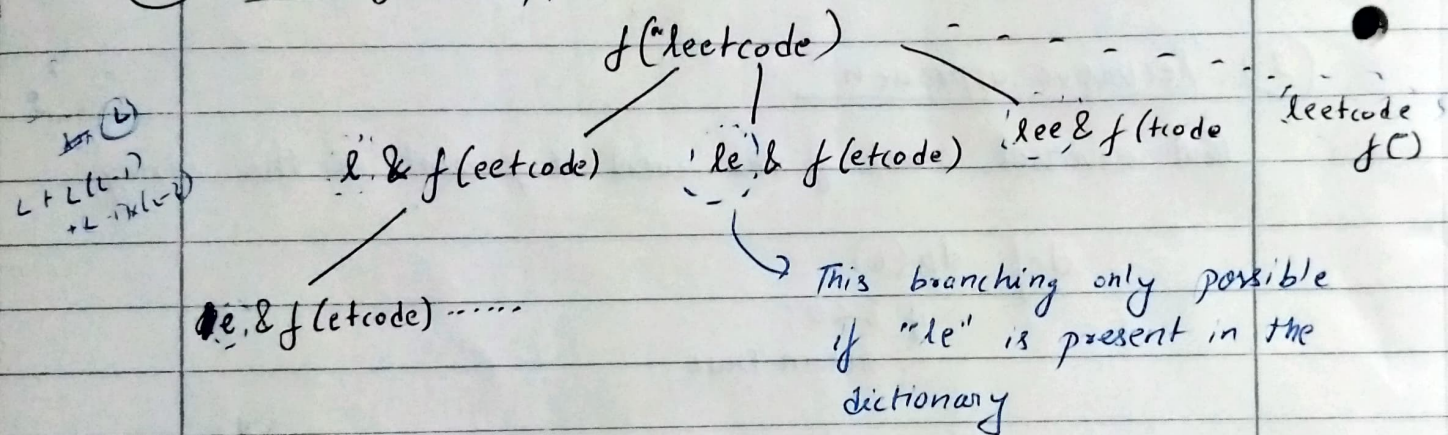 f("leetcode)
"l" & f(eetcode)
'le' & f(etcode)
'lee' & f(tcode
'leetcode
f()
L + L(L-1)
e, & f(etcode) ......
This branching only possible
if "le" is present in the
dictionary